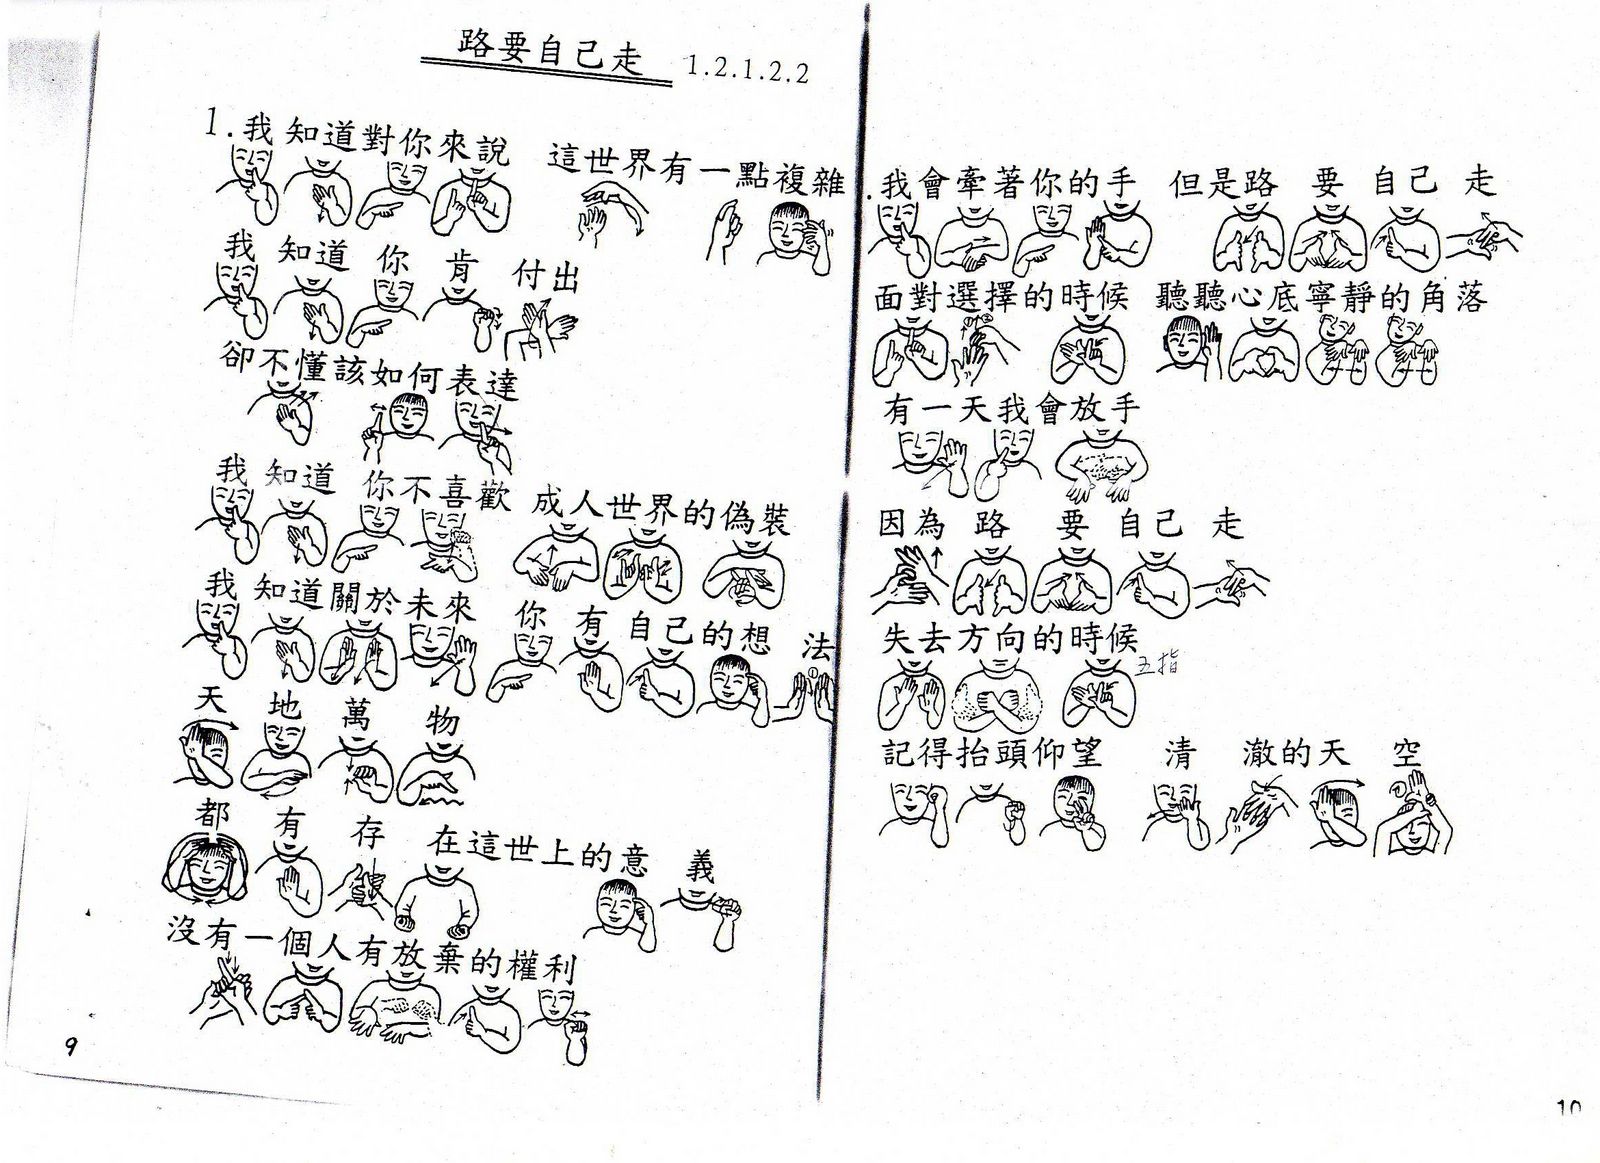 路要自己走 1.2.1.2.2
1.我知道對你來說 這世界有一點複雜
我知道你肯付出
卻不懂該如何表達
我知道你不喜歡 成人世界的偽裝
我知道關於未來 你有自己的想法
天地萬物
都有存在這世上的意義
沒有一個人有放棄的權利
9
.我會牽著你的手 但是路要自己走
面對選擇的時候 聽聽心底寧靜的角落
有一天我會放手
因為路要自己走
失去方向的時候
五指
記得抬頭仰望 清澈的天空
10